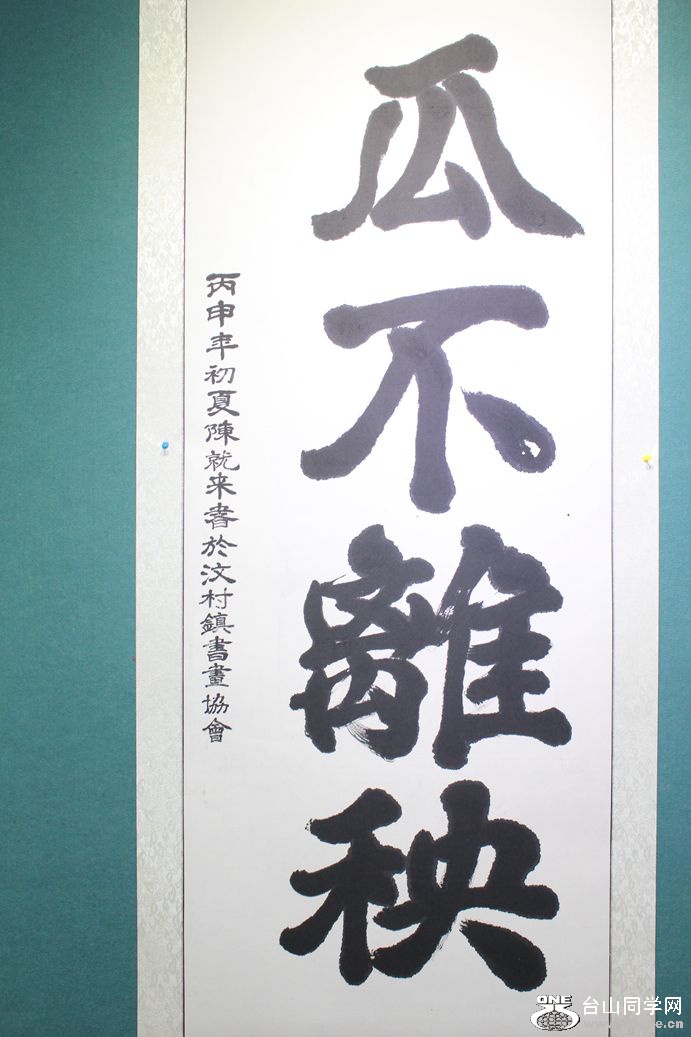 瓜不離秧
丙申年初夏陳就来書於汶村鎮書畫協會
ONE
台山同学网